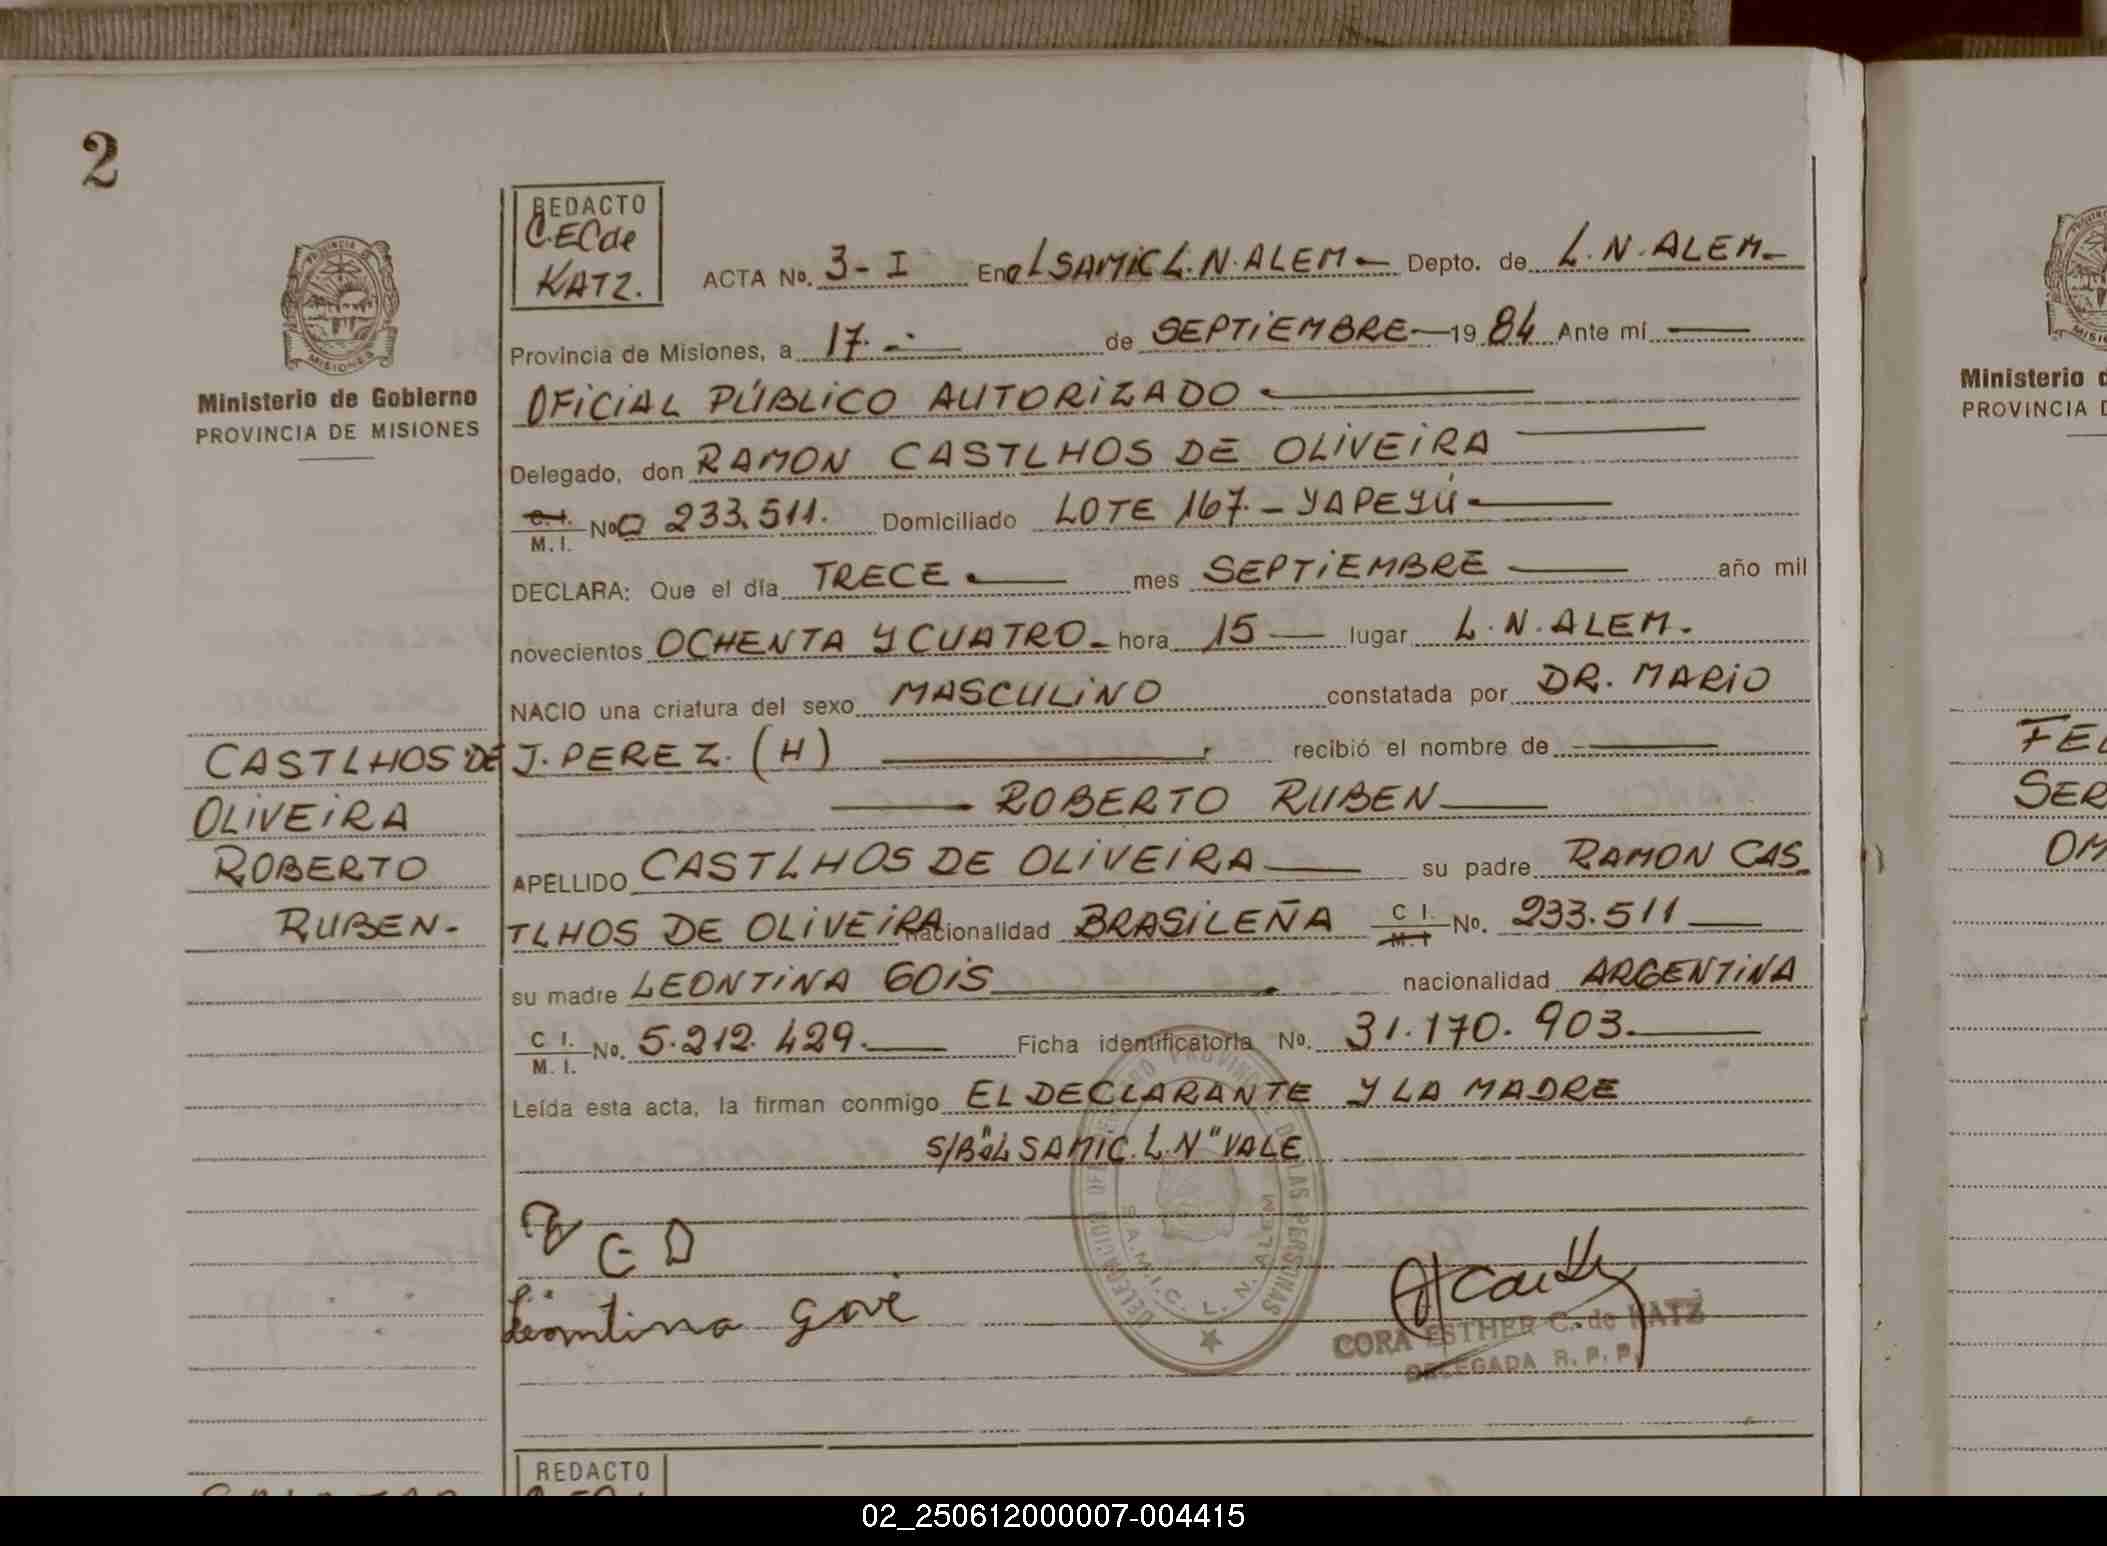 2
REDACTO
C.EC de
KATZ.
ACTA No. 3-I En el SAMIC L.N.ALEM Depto. de L.N.ALEM
Provincia de Misiones, a 17 de SEPTIEMBRE 1984 Ante mí
OFICIAL PÚBLICO AUTORIZADO
Delegado, don RAMON CASTLHOS DE OLIVEIRA
C.I. M.I. No 233.511. Domiciliado LOTE 167.- YAPEYÚ
DECLARA: Que el día TRECE mes SEPTIEMBRE año mil
novecientos OCHENTA Y CUATRO hora 15 lugar L.N.ALEM.
NACIO una criatura del sexo MASCULINO constatada por DR. MARIO
J. PEREZ. (H) recibió el nombre de
ROBERTO RUBEN
APELLIDO CASTLHOS DE OLIVEIRA su padre RAMON CAS
TLHOS DE OLIVEIRA nacionalidad BRASILEÑA C I. M.I No. 233.511
su madre LEONTINA GOIS nacionalidad ARGENTINA
C I. M.I. No. 5.212.429. Ficha identificatoria No. 31.170.903.
Leída esta acta, la firman conmigo EL DECLARANTE Y LA MADRE
S/B "el SAMIC. L.N" VALE
R C D
Leontina
CORA ESTHER C. de KATZ
DELEGADA R. P. P.
S.A.M.I.C. L. N. ALEM
PROVINCIA DE MISIONES
Ministerio de Gobierno
PROVINCIA DE MISIONES
CASTLHOS DE
OLIVEIRA
ROBERTO
RUBEN.
REDACTO
Ministerio
PROVINCIA
FE
SER
OM
02_250612000007-004415